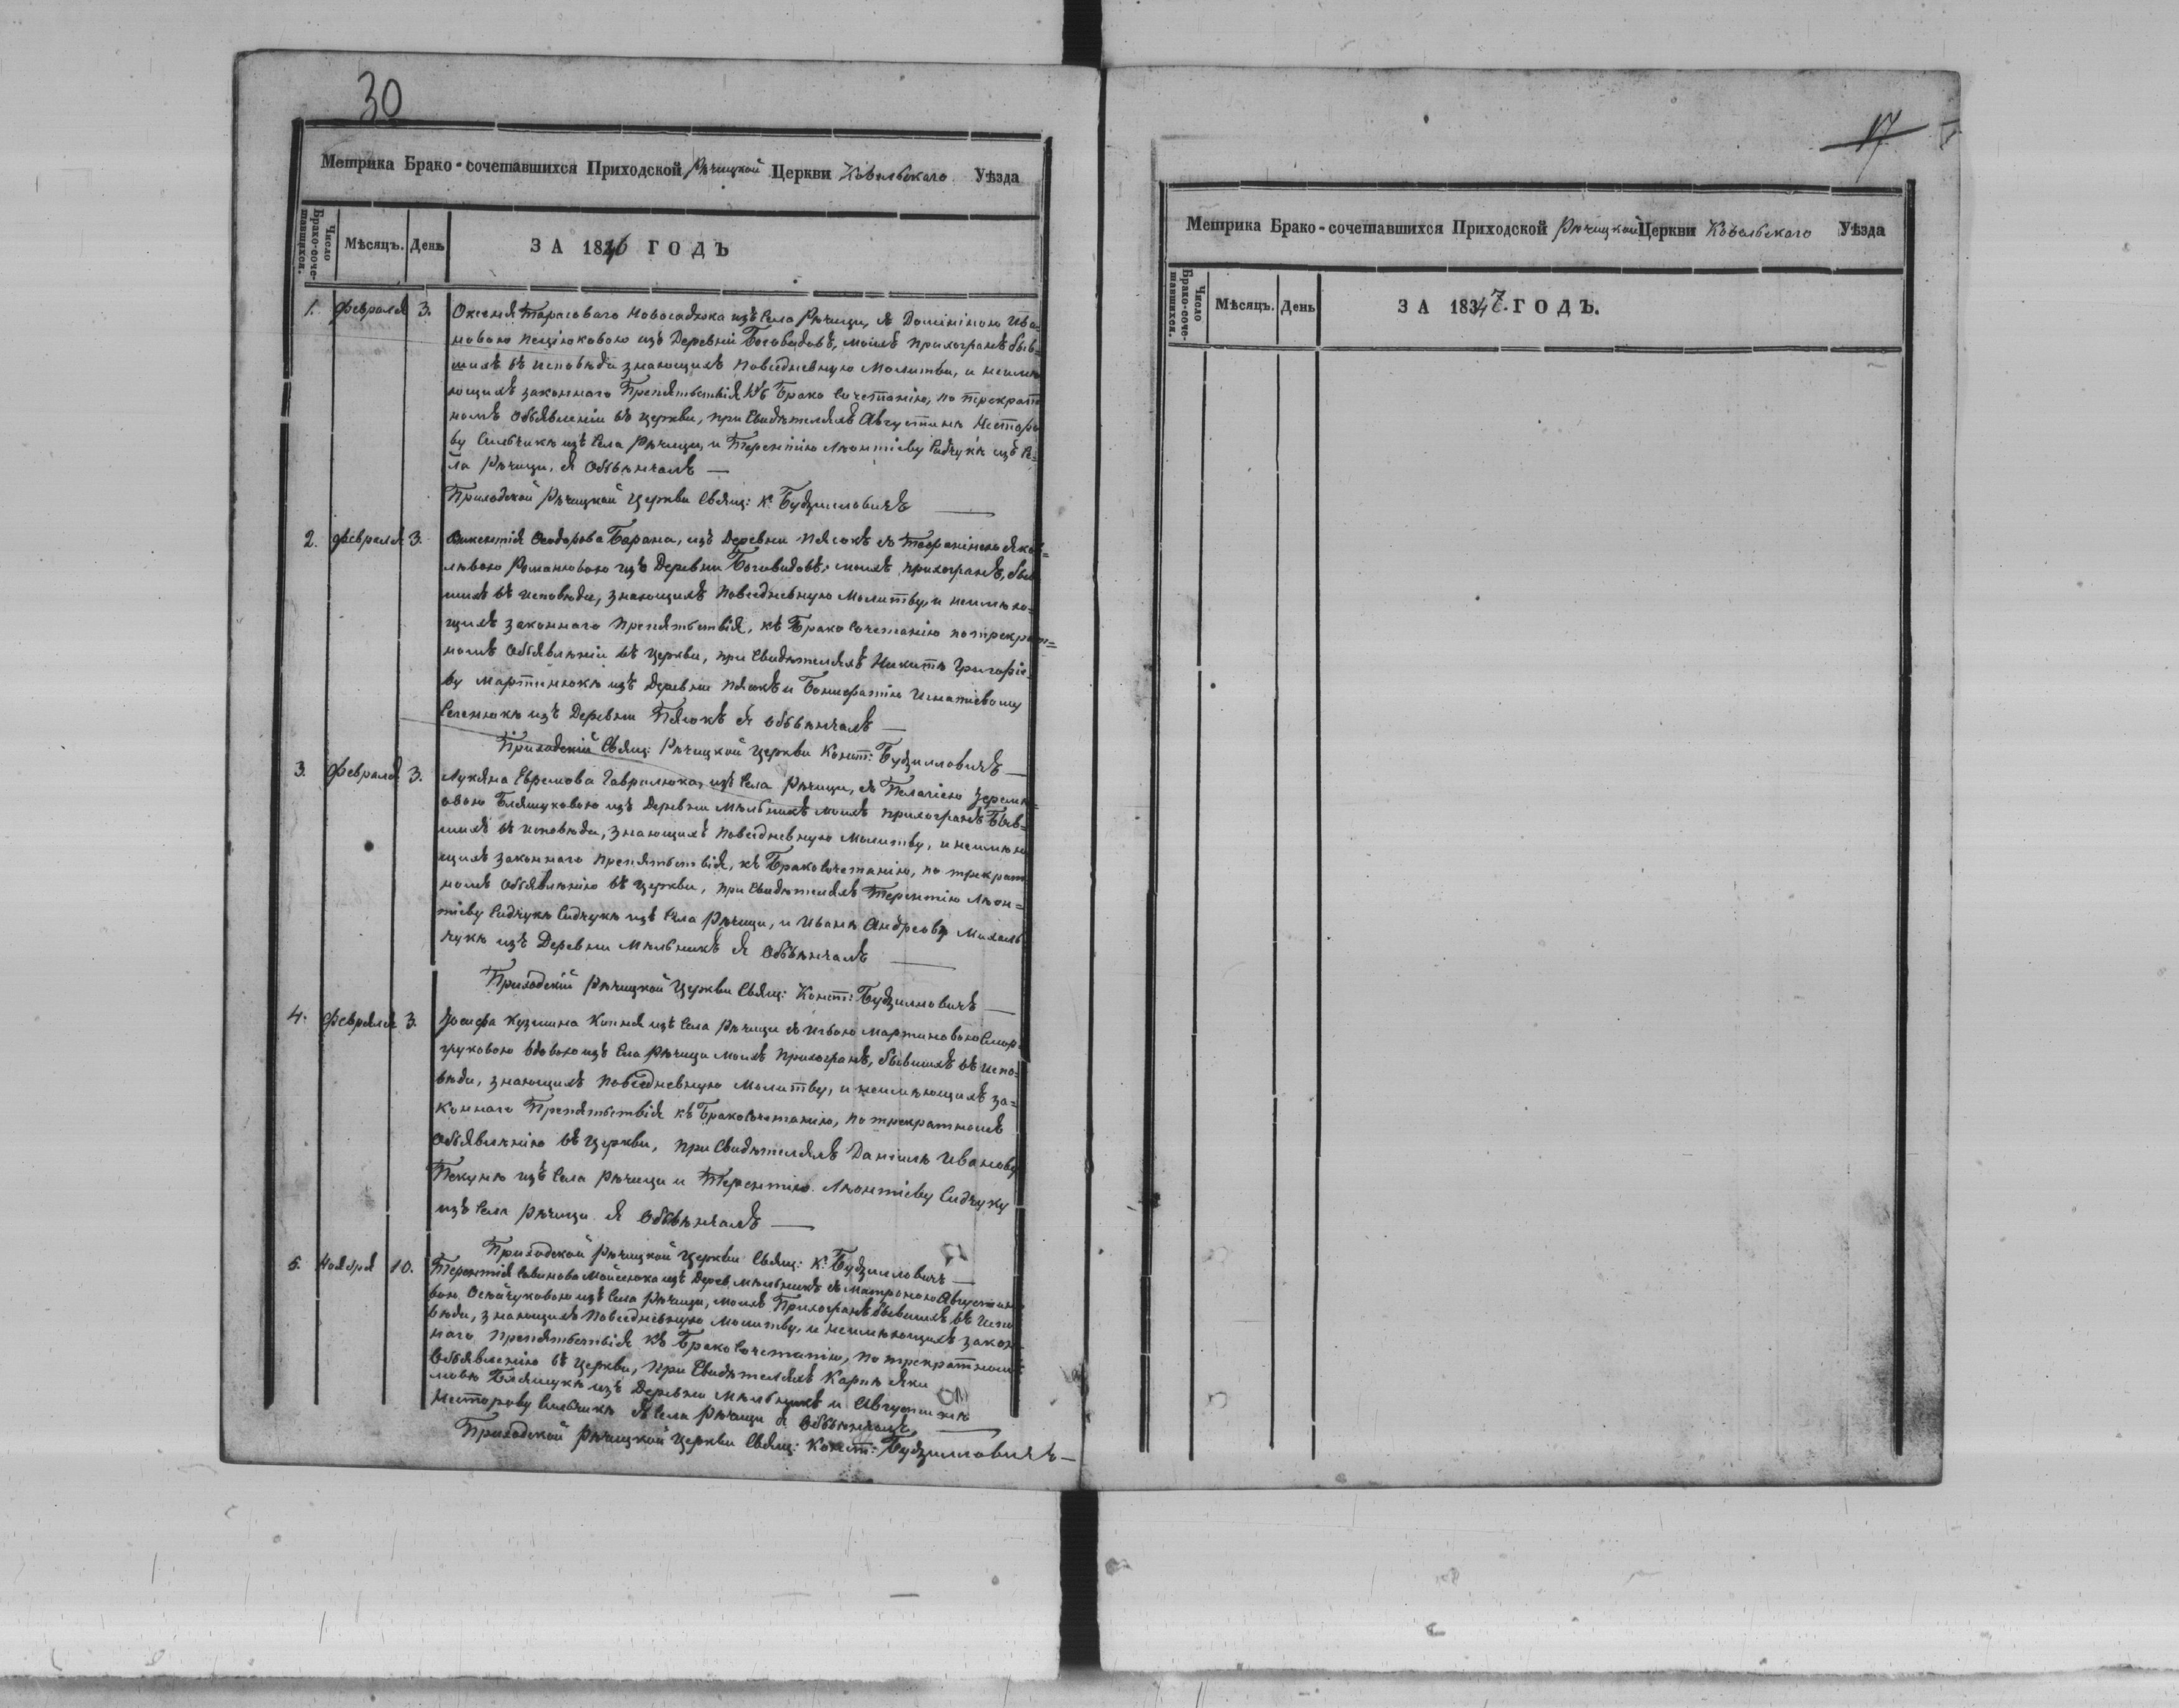 30
Метрика Брако-сочетавшихся Приходской Рѣчицкой Церкви Ковельскаго Уѣзда
Число Брако-соче-тавшихся.
Мѣсяцъ.
День
ЗА 1846 ГОДЪ
1. Февраля 3. Тарасоваго Новосадюка изъ Села Рѣчицы, съ Домініною Ива=
новою изъ Деревни Боговидовъ, моихъ прихожанъ быв=
шихъ въ исповѣди знающихъ повседневную Молитву, и неимѣ
ющихъ законнаго Препятствія къ Брако Сочетанію, по трекрат
номъ объявленіи въ церкви, при Свидѣтеляхъ Августинѣ Несторо
ву Сильчикѣ изъ Села Рѣчицы, и Терентію Леонтіеву Сидчукѣ изъ Се=
ла Рѣчицы, я обвѣнчалъ —
Приходской Рѣчицкой Церкви Свящ: К: Будзилловичъ —
2. Февраля 3. Викентія Феодорова Барана, изъ Деревни Пясокъ съ Яков=
левою Романюковою изъ Деревни Боговидовъ; моихъ прихожанъ, быв
шихъ въ исповѣди, знающихъ повседневную Молитву, и неимѣю=
щихъ законнаго препятствія, къ Брако Сочетанію потрекрат=
номъ объявленіи въ церкви, при Свидѣтеляхъ Никитѣ Григоріе
ву Мартинюкѣ изъ Деревни Пясокъ и Бонифатію Игнатіевому
изъ Деревни Пясокъ я обвѣнчалъ —
Приходскій Свящ: Рѣчицкой Церкви Конст: Будзилловичъ —
3. Февраля 3. Лукяна Ефремова Гаврилюка, изъ Села Рѣчицы, съ Пелагіею
овою Бляшуковою изъ Деревни Мѣльникъ моихъ прихожанъ Быв=
шихъ въ исповѣди, знающихъ повседневную молитву, и неимѣю
щихъ законнаго препятствія, къ Брако Сочетанію, по трекрат
номъ объявленію въ церкви, при Свидѣтеляхъ Терентію Леон=
тіеву Сидчукѣ Сидчукѣ изъ Села Рѣчицы, и Иванѣ Андрееву Михаль
чукѣ изъ Деревни Мѣльникъ я обвѣнчалъ —
Приходскій Рѣчицкой Церкви Свящ: Конст: Будзилловичъ —
4. Февраля 3. Іосифа Кузмина изъ Села Рѣчицы съ Мартиновою
вдовою изъ Села Рѣчицы моихъ прихожанъ, бывшихъ въ испо=
вѣди, знающихъ повседневную молитву, и неимѣющихъ за=
коннаго Препятствія къ Брако Сочетанію, по трекратномъ
объявленію въ церкви, при Свидѣтеляхъ Данилѣ Иванову
изъ Села Рѣчицы и Терентію Леонтіеву Сидчуку
изъ Села Рѣчицы я обвѣнчалъ —
Приходской Рѣчицкой Церкви Свящ: К: Будзилловичъ —
5. Ноября 10. Терентія Савинова Мойсеюка изъ Дерев. Мѣльникъ съ Матроною Августино
вою изъ Села Рѣчицы, моихъ Прихожанъ бывшихъ въ Испо
вѣди, знающихъ повседневную молитву, и неимѣющихъ закон
наго препятствія къ Брако Сочетанію, по трекратномъ
объявленію въ церкви, при Свидѣтеляхъ Карпѣ Яки
мову Бляшукѣ изъ Деревни Мѣльникъ и Августинѣ
Несторову Сильчикѣ съ Села Рѣчицы я обвѣнчалъ, —
Приходской Рѣчицкой Церкви Свящ: Конст: Будзилловичъ —
17
Метрика Брако-сочетавшихся Приходской Рѣчицкой Церкви Ковельскаго Уѣзда
Число Брако-соче-тавшихся.
Мѣсяцъ.
День
ЗА 1847 ГОДЪ.